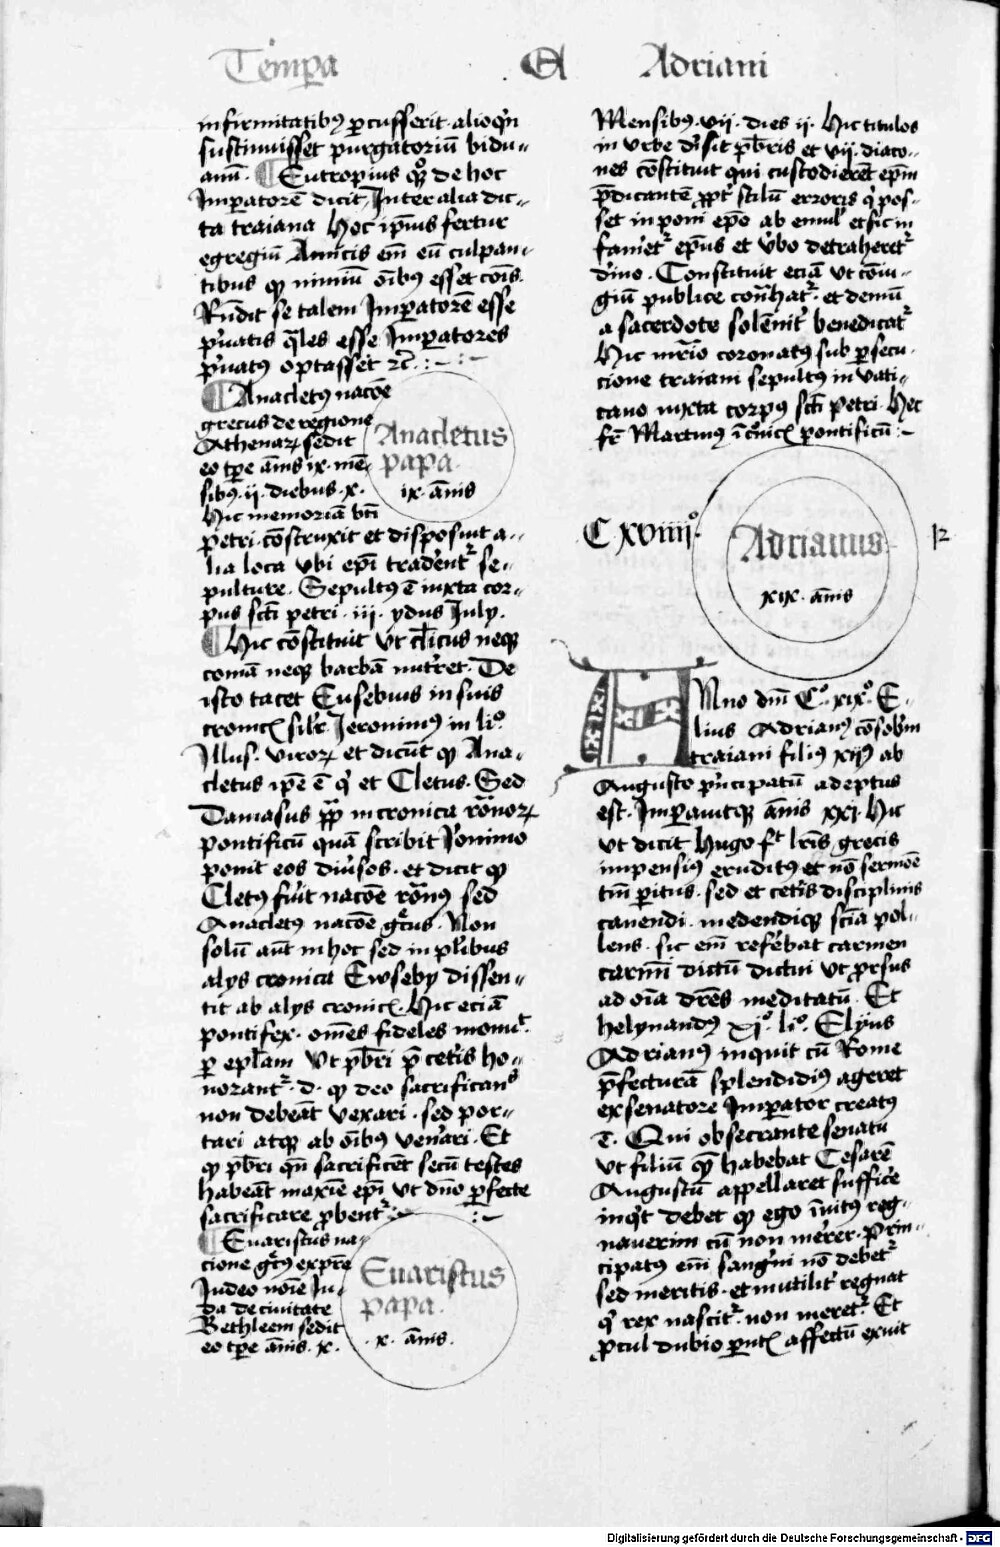 Tempa A Adriani
infirmitatibꝰ ꝑcusserit alioqͥn
sustinuisset purgatoriū bidu-
anū. Eutropius qͦꝫ de hoc
Imꝑatorē dicit Inter alia dic-
ta traiana Hoc ipīus fertur
egregiū Amicis em̄ eū culpan-
tibus ꝙ nimiū oībꝰ esset cōis.
Rn̄dit se talem Imꝑatorē esse
pͥuatis q̄les esse Imꝑatores
pͥuatꝰ optasset ⁊c̄.
Anacletꝰ nacōe
grecus de regione
Athenaꝝ sedit
eo tꝑe ānis ix. mē-
sibꝰ. ij. diebus. x.
Hic memoriā bt̄i
petri. cōstruxit et disposuit a-
lia loca vbi epī tradent᷑ se-
pulture. Sepultꝰ ē iuxta cor-
pus scti petri. iij. ydus July.
Anacletus
papa
ix. ānis
Hic cōstituit vt cl̄icus neqꝫ
comā neqꝫ barbā nutret. De
isto tacet Eusebius in suis
cronicꝭ sil̄r Jeronimꝰ in liͦ.
Illus. viroꝝ et dicūt ꝙ Ana-
cletus ip̄e ē qͥ et Cletus. Sed
Damasus pp̄ in cronica rōnoꝝ
pontificū quā scribit Jōnimo
ponit eos diu͛sos. et dicit ꝙ
Cletꝰ fuit nacōe rōnꝰ sed
Anacletꝰ nacōe gͨcus. Non
solū aūt in hoc sed in pl̄ibus
alys cronica Ewseby dissen-
tit ab alys cronicꝭ. Hic eciā
pontifex. om̄es fideles monuͭ.
ꝑ epl̄am vt pb̄ri p̄ cet͛is ho-
norant᷑. d. ꝙ deo sacrificans
non debeāt vexari. sed por-
tari atqꝫ ab oībꝰ ven͛ari. Et
ꝙ pb̄ri qn̄ sacrificēt secū testes
habeāt maxīe epī vt dn̄o ꝑfecte
sacrificare ꝓbent᷑.
Euaristus na-
cione gͨꝰ ex pr̄e
Judeo noīe Ju-
da de ciuitate
Bethleem sedit
eo tꝑe ānis. x.
Euaristus
papa.
x. ānis.
Mensibꝰ. vij. dies ij. Hic titulos
in vrbe diͥsit pb̄ris et vij. diaco-
nes cōstituit qui custodierēt epm̄
p̄dicantē ꝓpt͛ stilū erroris qͥ pos-
set in poni epō ab emul̓ et sic in
famet᷑ epūs et v͛bo detraheret᷑
diͥno. Constituit eciā vt cōiu-
giū publice cont͛hat᷑. et demū
a sacerdote solēnit͛ benedicat᷑
Hic mr̄io coronatꝰ sub ꝑsecu-
cione traiani sepultꝰ in vati-
cano iuxta corpꝰ scti petri. Hec
fr̄ Martinꝰ ī cͦnicꝭ pontificū
C xviiijͦ.
Adrianus
xix. ānis
12
Anno dnī Cͦ. xixͦ. E-
lius Adrianꝰ cōsobͥn
traiani filiꝰ xijꝰ ab
Augusto pͥncipatū adeptus
est. Imꝑauitqꝫ ānis xxj. Hic
vt dicit Hugo fͭ lr̄is grecis
impensiꝰ eruditꝰ et nō sermōe
tm̄ ꝑitus. sed et cet͛is disciplinis
canendi. medendiqꝫ scīa pol-
lens. sic em̄ refe͛bat carmen
carmī dictū dictui vt ꝓrsus
ad oīa dr̄es meditatū. Et
helynandꝰ xjͦ. liͦ. Elyus
Adrianꝰ inquit cū Rome
p̄fecturā splendidiꝰ ageret
ex senatore Imꝑator creatꝰ
ē. Qui obsecrante senatu
vt filiū qͫ habebat Cesarē
Augustū appellaret suffice͛
inqͥt debet ꝙ ego īuitꝰ reg-
nauerim cū non mer͛er. Prin-
cipatꝰ em̄ sangͥni nō debet᷑
sed meritis. et inutilit͛ regnat
qͥ rex nascit᷑. non meret᷑. Et
ꝓcul dubio ꝑntꝭ affectū exuit
Digitalisierung gefördert durch die Deutsche Forschungsgemeinschaft - DFG